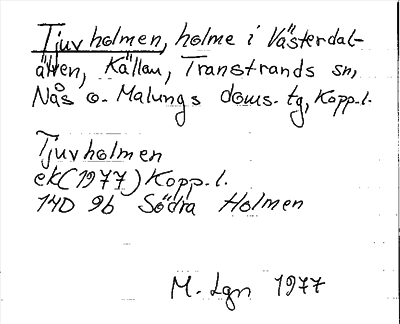 Tjuvholmen, holme i Västerdal-
älven, Källan, Transtrands sn,
Nås o. Malungs doms. tg, Kopp. l.
Tjuvholmen
ek (1977) Kopp. l.
14D 9b Södra Holmen
M. Lgn 1977